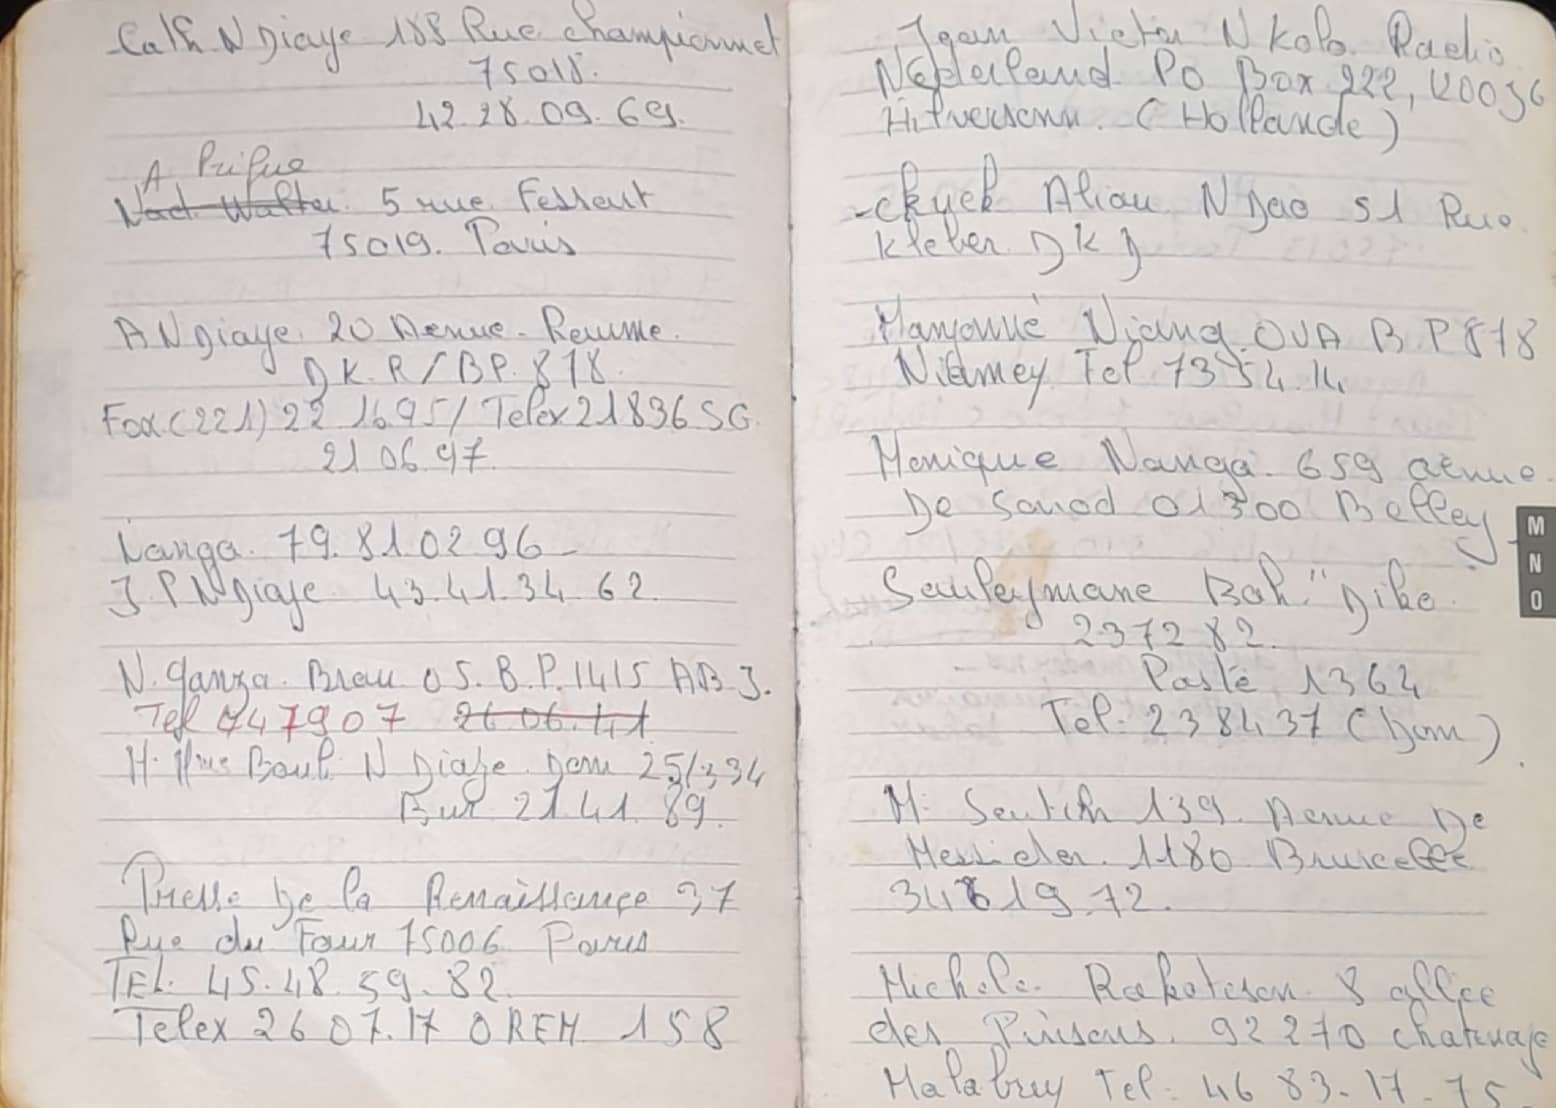 Cath N Diaye 188 Rue Championnet
75018.
42.28.09.69.
A Prifue
Nad. Walter. 5 rue Fessart
75019. Paris
A N Diaye. 20 Avenue
D K. R / B P. 878.
Fax (221) 22 16.95 / Telex 21836 SG.
21 06.97.
Nanga. 79.81 02 96
J. P N Diaye 43.41.34 62.
N. Ganza. Brau 05. B.P. 1415 AB J.
Tel 447907 26 06.41
M. Mme Boul N Diaye. Dom 25/334
Bur 21.41.89.
Presse De la Renaissance 37
Rue du Four 75006 Paris
TEL. 45.48.59.82.
Telex 26 07.17 OREM 158
Jean Victor N Kolo. Radio
Nederland PO Box 222, 1200JG
Hilversenn. (Hollande)
- Chyek Aliou N Dao 51 Rue
Kleber. DKD
Niang. OUA B P 878
Niamey. Tel 73 54.14
Monique Nanga. 659 avenue
De Sonod 01300 Belley
Souleymane Bah. "Dibo
2372 82.
Poste 1364
Tel: 238437 (Dom)
M. 139. Avenue De
Messidor. 1180 Bruxelle
348 19.72.
Michele. Rakotoson 8 allee
des Pinsons. 92 270 chatenay
Malabry Tel: 46 83.17.75.
M
N
O